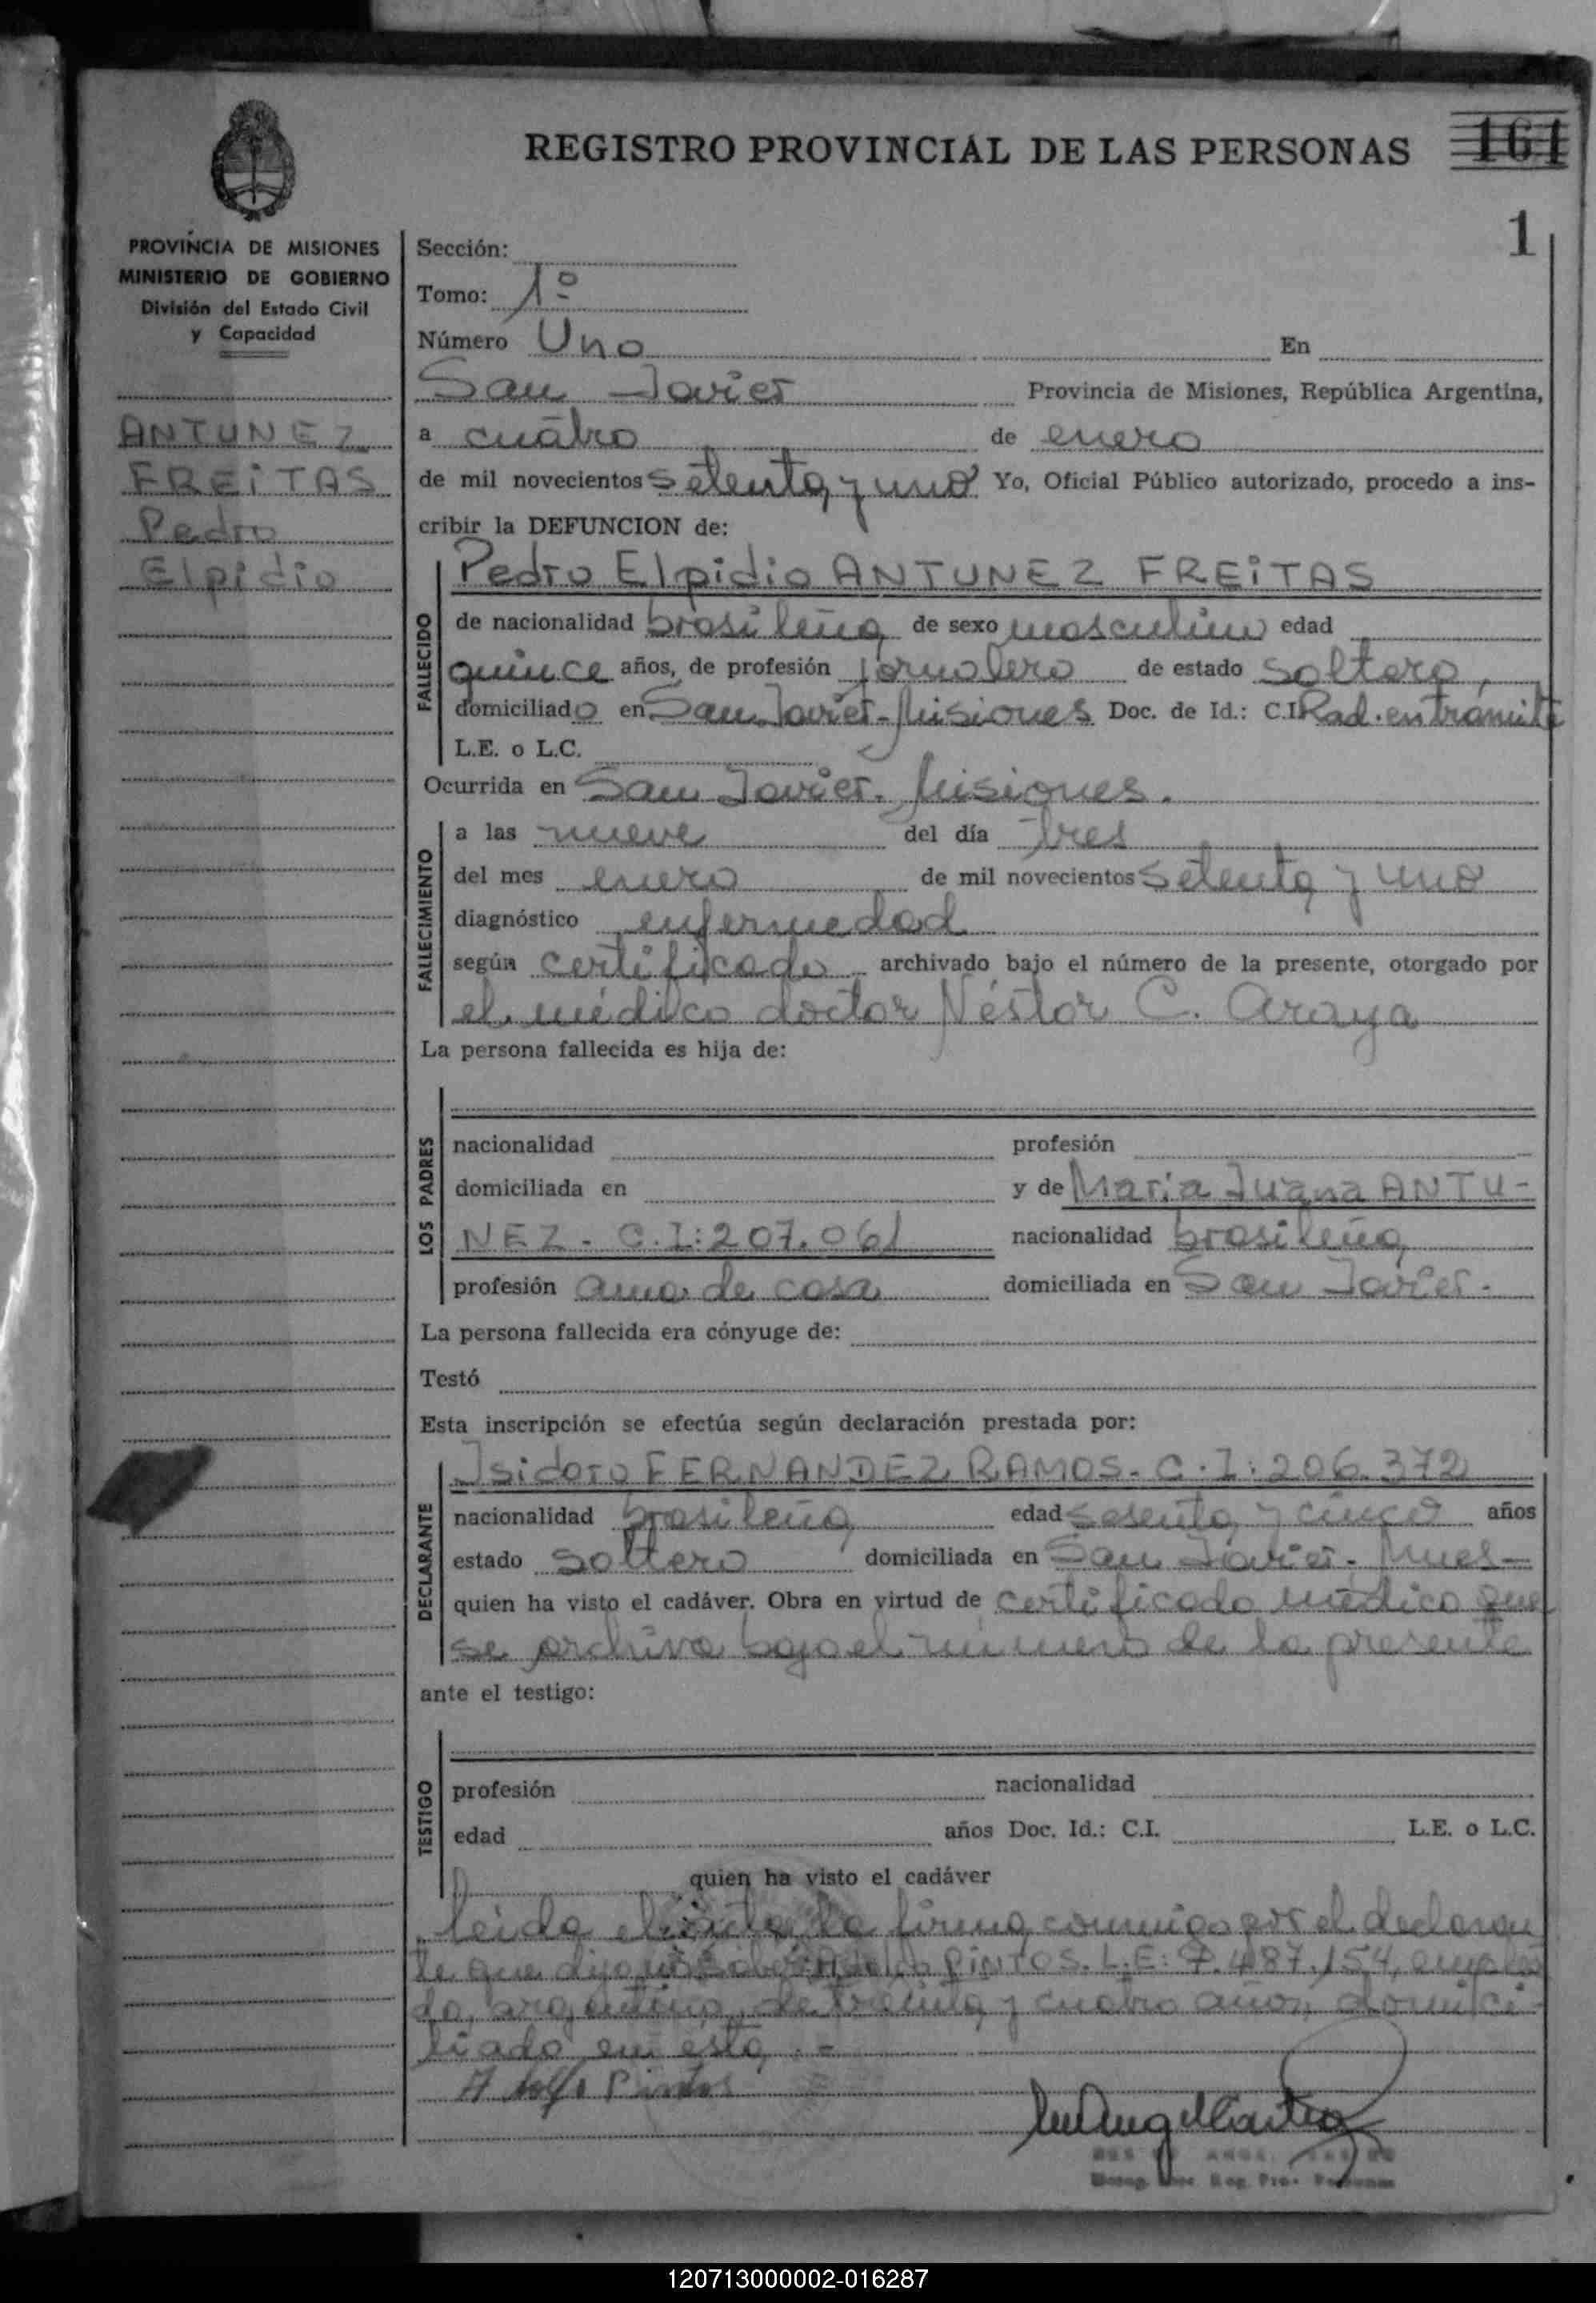 REGISTRO PROVINCIAL DE LAS PERSONAS 161
1
PROVINCIA DE MISIONES
MINISTERIO DE GOBIERNO
División del Estado Civil
y Capacidad
ANTUNEZ
FREiTAS
Pedro
Elpidio
Sección:
Tomo: 1º
Número Uno En
San Javier Provincia de Misiones, República Argentina,
a cuatro de enero
de mil novecientos setenta y uno Yo, Oficial Público autorizado, procedo a ins-
cribir la DEFUNCION de:
FALLECIDO
Pedro Elpidio ANTUNEZ FREiTAS
de nacionalidad brasileña de sexo masculino edad
quince años, de profesión jornalero de estado soltero,
domiciliado en San Javier-Misiones Doc. de Id.: C.I. Rad. en trámite
L.E. o L.C.
Ocurrida en San Javier. Misiones.
FALLECIMIENTO
a las nueve del día tres
del mes enero de mil novecientos setenta y uno
diagnóstico enfermedad
según certificado archivado bajo el número de la presente, otorgado por
el médico doctor Néstor C. Araya
La persona fallecida es hija de:
LOS PADRES
nacionalidad profesión
domiciliada en y de Maria Juana ANTU-
NEZ - C.I: 207.061 nacionalidad brasileña
profesión ama de casa domiciliada en San Javier.
La persona fallecida era cónyuge de:
Testó
Esta inscripción se efectúa según declaración prestada por:
DECLARANTE
Isidoro FERNANDEZ RAMOS. C.I: 206.372
nacionalidad brasileña edad sesenta y cinco años
estado soltero domiciliada en San Javier. Mnes-
quien ha visto el cadáver. Obra en virtud de certificado médico que
se archiva bajo el número de la presente
ante el testigo:
TESTIGO
profesión nacionalidad
edad años Doc. Id.: C.I. L.E. o L.C.
quien ha visto el cadáver
leida el acta la firma conmigo por el declaran
te que dijo no saber Adolfo PiNTOS. L.E: 7.487.154, emplea
do, argentino, de treinta y cuatro años, domici-
liado en esta.-
Adolfo Pintos
120713000002-016287